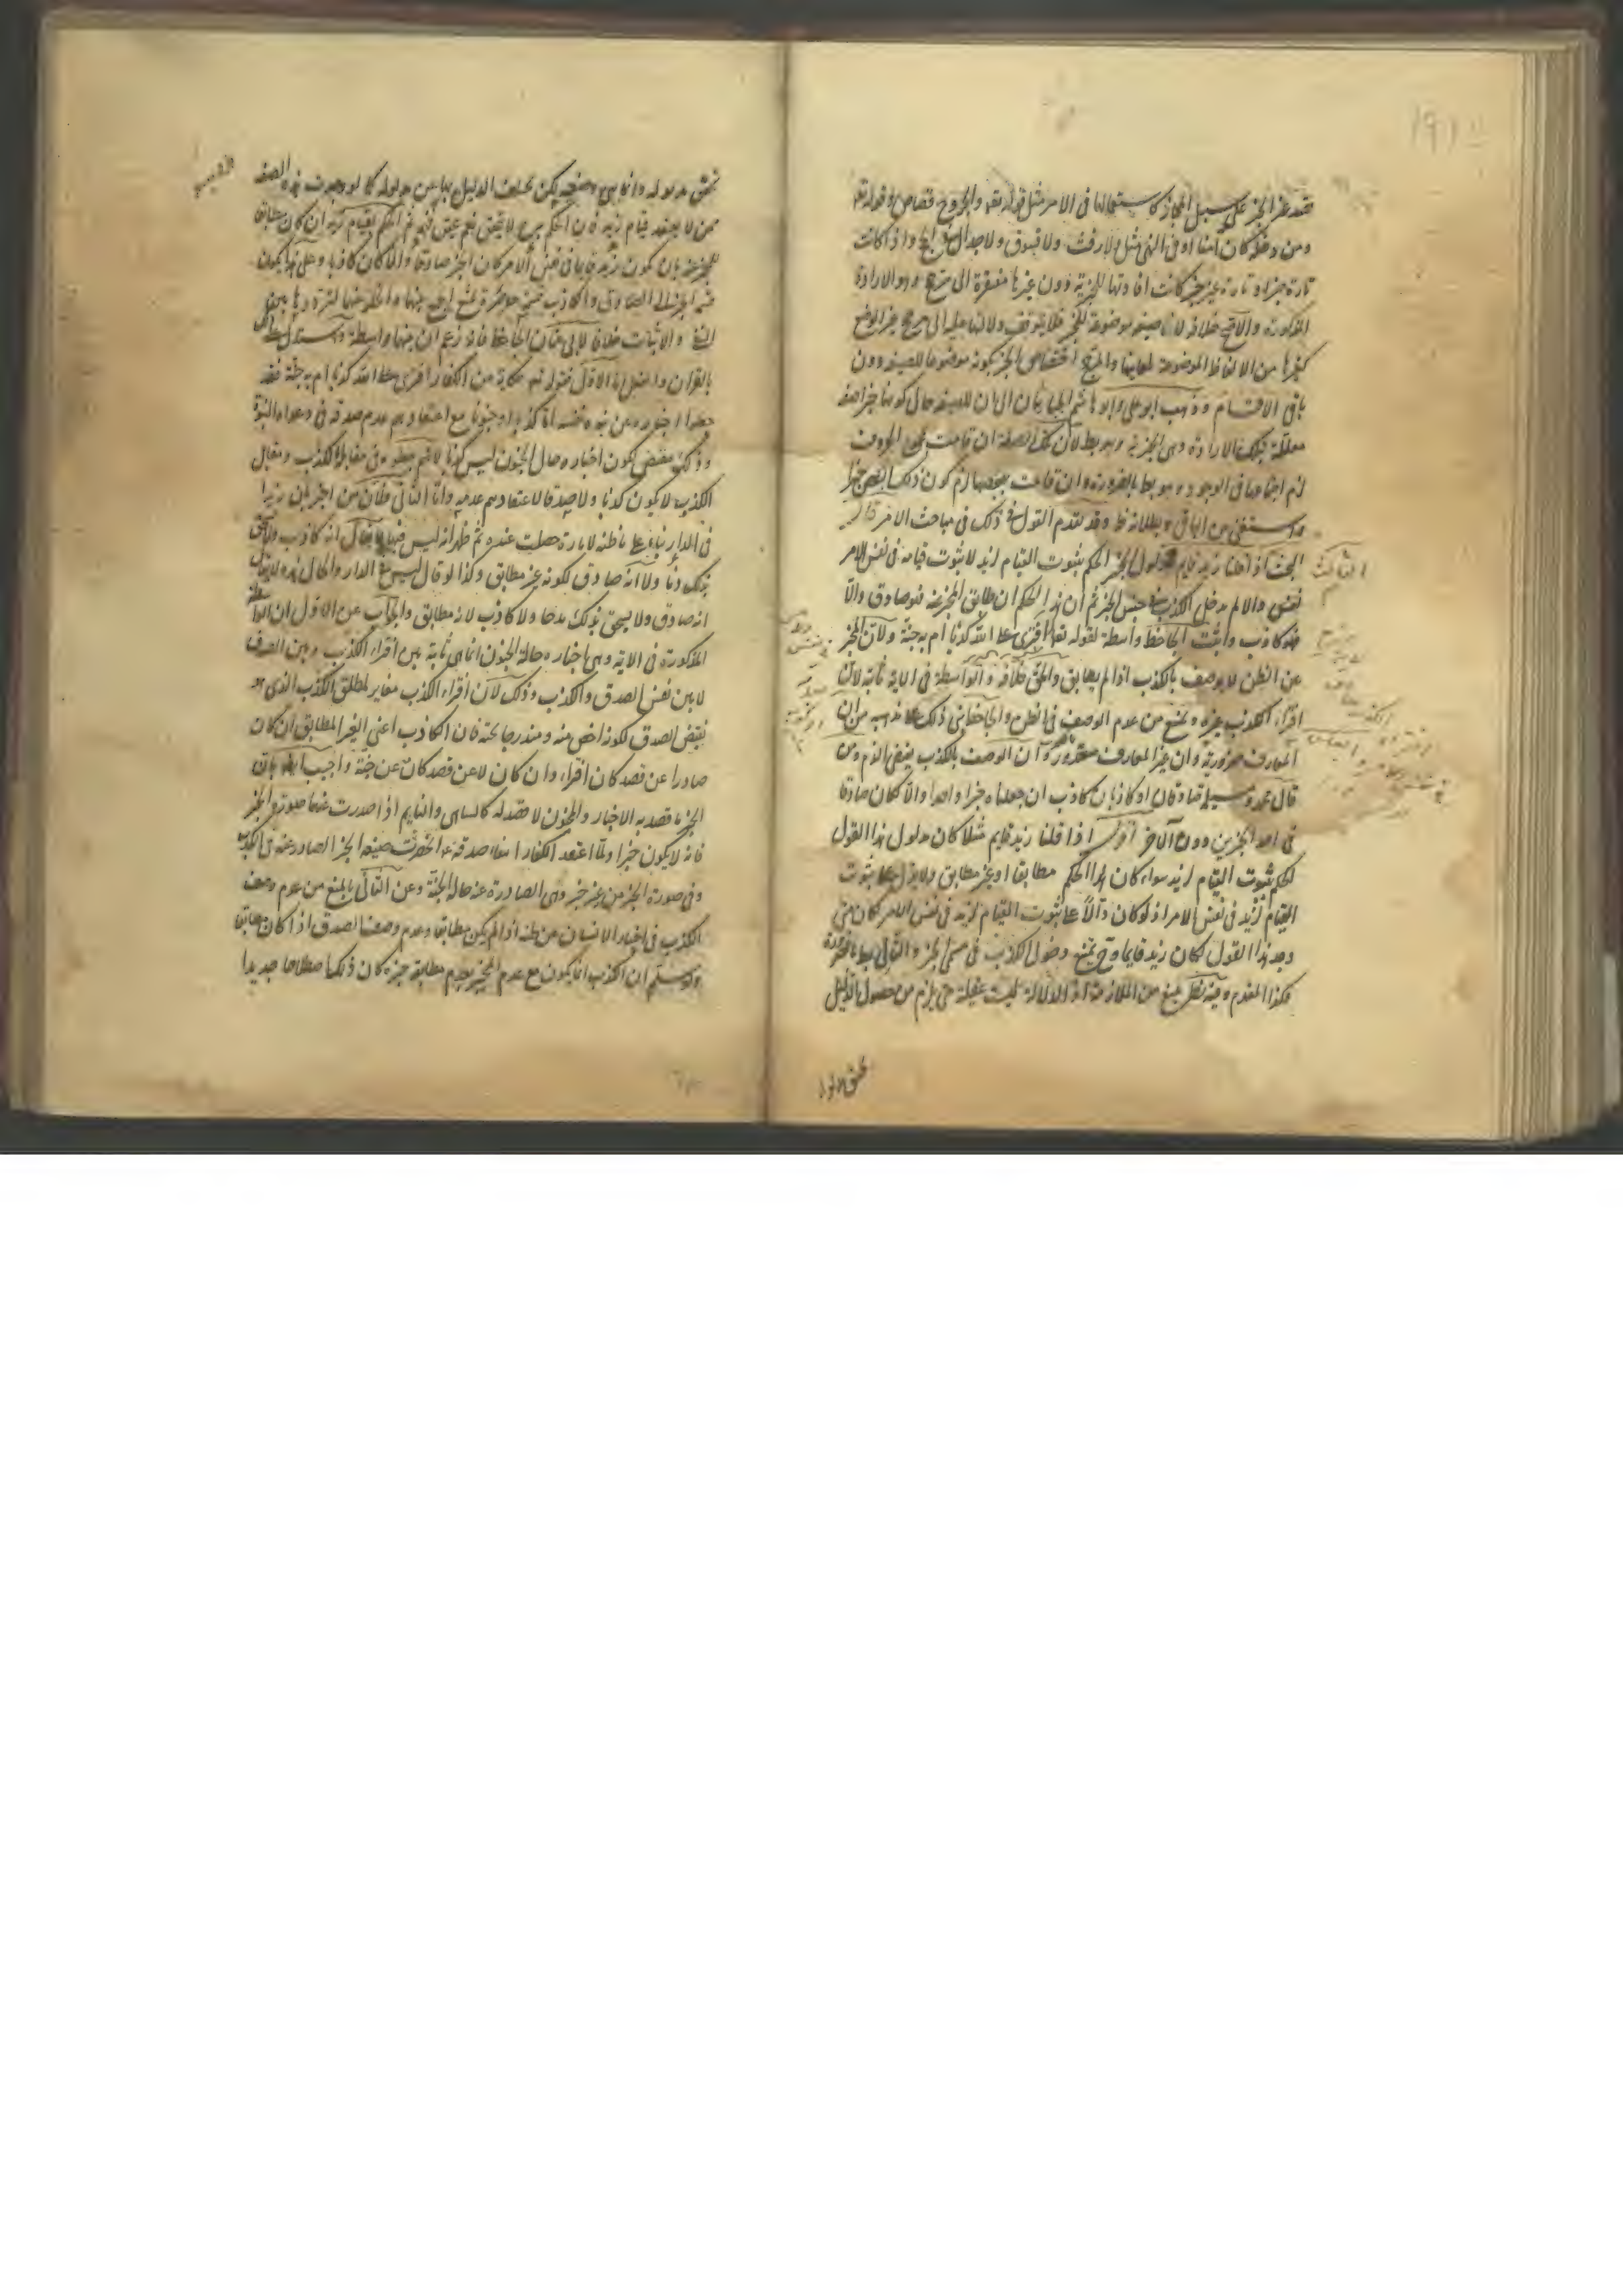 فقد ظهر الخبر على سبيل المجاز كاستعمالها فى الامر مثل قوله تعالى والجروح قصاص وقوله تعالى
ومن دخله كان آمنا او فى النهى مثل ولا رفث ولا فسوق ولا جدال فى الحج واذا كانت
تارة خبرا وتارة غير خبر كانت افادتها للخبرية دون غيرها مفتقرة الى مرجح وهو الارادة
المذكورة والحق خلافه لان الصيغة موضوعة للخبر فلا يتوقف دلالتها عليه الى مرجح غير الوضع
كغيرها من الالفاظ الموضوعة لمعانيها والمرجح اختصاص الخبر بكونه موضوعا للصيغة دون
باقى الاقسام وذهب ابو على وابو هاشم الجبائيان الى ان للصيغة حال كونها خبرا صفة
معللة بتلك الارادة وهى الخبرية وهو بط لان هذه الصفة ان قامت بمجموع الحروف
لزم اجتماعها فى الوجود وهو بط بالضرورة وان قامت ببعضها لزم كون ذلك البعض خبرا
واستغنى عن الباقى وبطلانه ظ وقد تقدم القول فى ذلك فى مباحث الامر قال
الثالث
البحث اذا قلنا زيد قايم فمدلول الخبر الحكم بثبوت القيام لزيد لا ثبوت قيامه فى نفس الامر
نفس والا لم يدخل الكذب فى جنس الخبر ثم ان هذا الحكم ان طابق المخبر عنه فهو صادق والا
فهو كاذب واثبت الجاحظ واسطة لقوله تعالى افترى على الله كذبا ام به جنة ولان المخبر
عن الظن لا يوصف بالكذب اذا لم يطابق والحق خلافه والواسطة فى الاية ثابتة لان
افتراء الكذب غيره ونمنع من عدم الوصف فى الظن والجاحظ بنى ذلك على مذهبه من ان
المعارف ضرورية وان غير العارف معذور وان الوصف بالكذب يقتضى الذم ومن
قال محمد ومسيلمة صادقان او كاذبان كاذب ان جعلناه خبرا واحدا والا كان صادقا
فى احد الخبرين دون الآخر اقول اذا قلنا زيد قايم مثلا كان مدلول هذا القول
الحكم بثبوت القيام لزيد سواء كان هذا الحكم مطابقا او غير مطابق ولا يدل على ثبوت
القيام لزيد فى نفس الامر اذ لو كان دالا على ثبوت القيام لزيد فى نفس الامر كان متى
وجد هذا القول كان زيد قايما وح يمتنع دخول الكذب فى مسمى الخبر والتالى بط بالضرورة
فكذا المقدم وفيه نظر يمنع من الملازمة اذ الدلالة ليست عقلية حتى يلزم من حصول الدليل
تحقق مدلوله وانما هى وضعية يمكن تخلف الدليل فيها عن مدلوله كما لو وجدت هذه الصيغة
ممن لا يعتقد قيام زيد فان الحكم
للمخبر عنه بان يكون زيد قايما فى نفس الامر كان الخبر صادقا والا كان كاذبا وعلى هذا يكون
قسمة الخبر الى الصادق والكاذب قسمة حاصرة
النفى والاثبات خلافا لابى عثمان الجاحظ فانه زعم ان بينهما واسطة واستدل عليه
بالقرآن والعقل اما الاول فقوله تعالى حكاية عن الكفار افترى على الله كذبا ام به جنة فقد
جعلوا اخباره عن نبوة نفسه اما كذبا او جنونا مع اعتقادهم عدم صدقه فى دعواه النبوة
وذلك يقتضى كون اخباره حال الجنون ليس كذبا لانهم جعلوه فى مقابلة الكذب ومقابل
الكذب لا يكون كذبا ولا صدقا لاعتقادهم عدمه واما الثانى فلان من اخبر بان زيدا
فى الدار بناء على ظنه لامارة حصلت عنده ثم ظهر انه ليس فيها لا يقال انه كاذب ولا يستحق
بذلك ذما ولا انه صادق لكونه غير مطابق وكذا لو قال ليس فى الدار والحال هذه لا يقال
انه صادق ولا يستحق بذلك مدحا ولا كاذب لانه مطابق والجواب عن الاول ان الواسطة
المذكورة فى الاية وهى اخباره حالة الجنون انما هى ثابتة بين افتراء الكذب وبين الصدق
لا بين نفس الصدق والكذب وذلك لان افتراء الكذب مغاير لمطلق الكذب الذى هو
نقيض الصدق لكونه اخص منه ومندرجا تحته فان الكاذب اعنى الغير المطابق ان كان
صادرا عن قصد كان افتراء وان كان لا عن قصد كان عن جنة واجيب ايضا بان
الخبر ما قصد به الاخبار والمجنون لا قصد له كالساهى والنايم اذا صدرت عنهما صورة الخبر
فانه لا يكون خبرا ولما اعتقد الكفار انتفاء صدقه انحصرت صيغة الخبر الصادر عنه فى الكذب
وفى صورة الخبر من غير خبر وهى الصادرة عنه حالة الجنة وعن الثانى بالمنع من عدم وصف
الكذب فى اخبار الانسان عن ظنه اذا لم يكن مطابقا وعدم وصف الصدق اذا كان مطابقا
ولو سلم ان الكذب انما يكون مع علم المخبر بعدم مطابقة خبره كان ذلك اصطلاحا جديدا